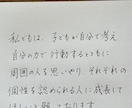 私どもは、子どもが自分で考え
自分の力で行動するとともに
周囲の人を思いやり それぞれの
個性を認められる人に成長して
ほしいと願っております